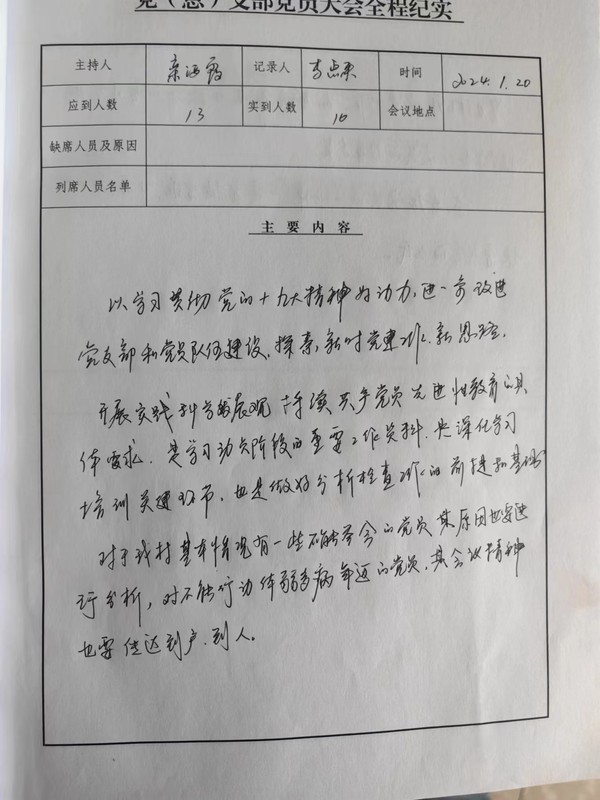 党（总）支部党员大会全程纪实
主持人 记录人 时间 2024.1.20
应到人数 13 实到人数 10 会议地点
缺席人员及原因
列席人员名单
主要内容
以学习贯彻党的十九大精神为动力,进一步改进
党支部和党员队伍建设,探索,新时党建工作,新思路.
开展实践科学发展观,持续共产党员先进性教育的具
体要求.是学习动员阶段的重要工作资料.央深化学习
培训关键环节,也是做好分析检查工作的前提和基础
对于我村基本情况有一些不能参会的党员其原因也要进
行分析，对不能行动体弱多病年迈的党员,其会议精神
也要传达到户.到人。